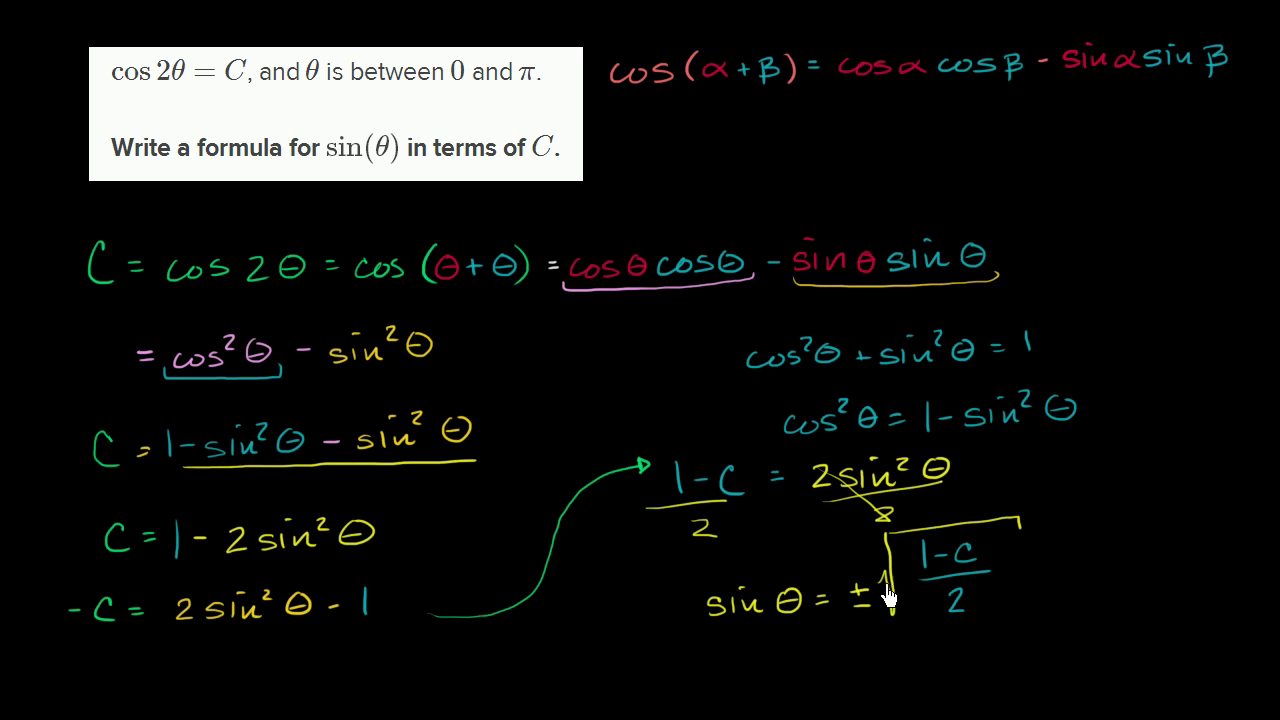 cos 2θ = C, and θ is between 0 and π.
Write a formula for sin(θ) in terms of C.
cos(α+β) = cosα cosβ - sinα sinβ
C = cos 2θ = cos(θ+θ) = cosθ cosθ - sinθ sinθ
= cos²θ - sin²θ
cos²θ + sin²θ = 1
cos²θ = 1 - sin²θ
C = 1 - sin²θ - sin²θ
C = 1 - 2 sin²θ
-C = 2 sin²θ - 1
1-C = 2 sin²θ
2 2
sinθ = ± √ 1-C
2